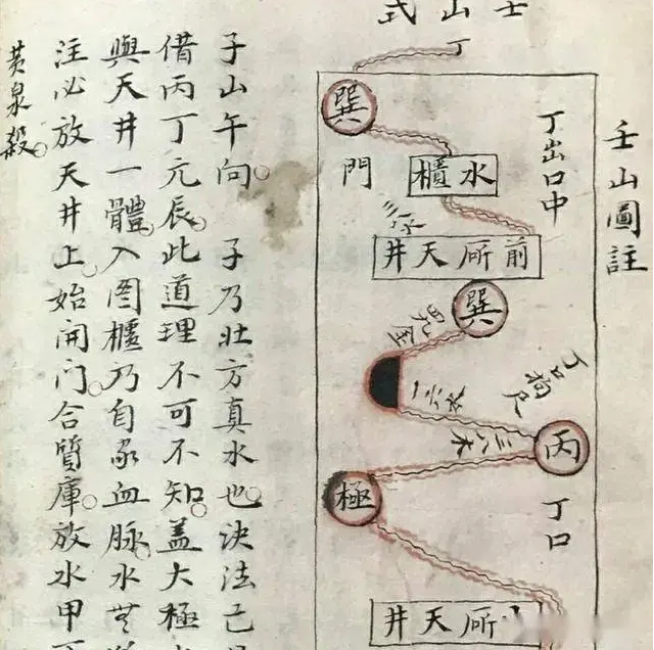 壬山式
壬山圖註
丁
巽
丁出口中
水櫃
門
前厛天井
巽
四九金
一六水
三八木
丙
極
丁口
厛天井
子山午向 子乃壯方真水也決法己
借丙丁元辰此道理不可不知蓋大極
與天井一體入圖櫃乃自家血脉水
注必放天井上始開门合質庫放水甲
黄泉殺